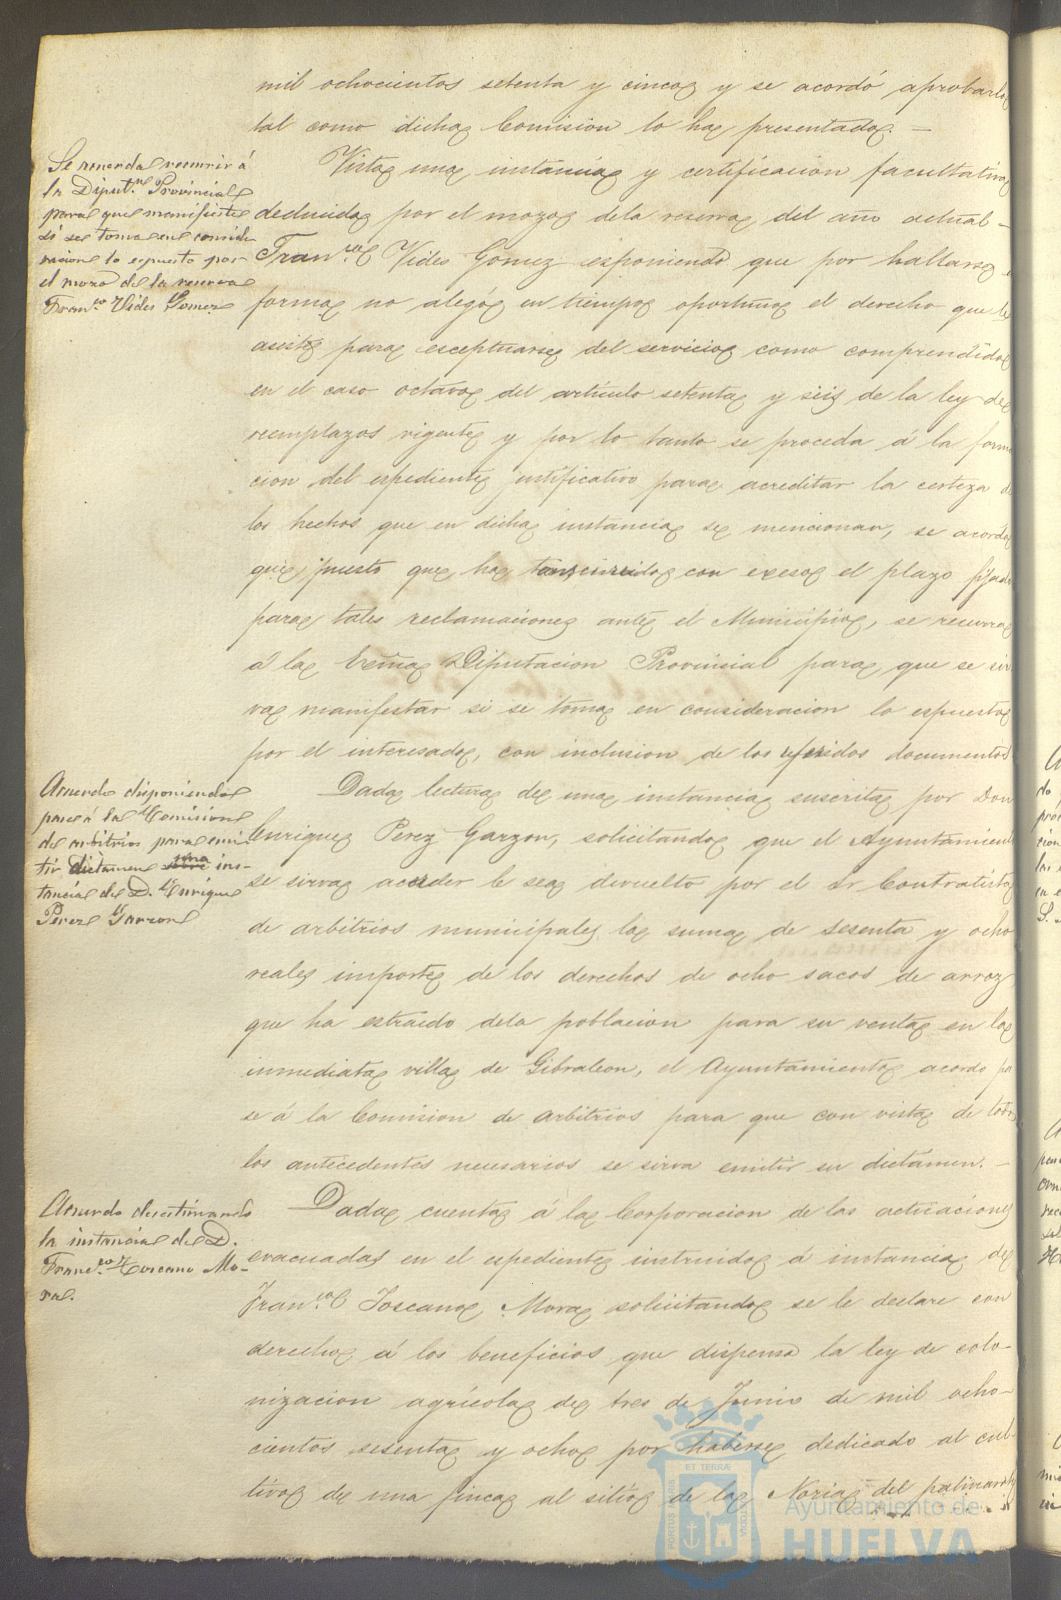 mil ochocientos setenta y cinco y se acordó aprobarlo
tal como dicha Comision lo ha presentado. —
Se acuerda recurrir á
la Diput.n Provincial
para que manifieste
si se toma en conside-
racion lo espuesto por
el mozo de la reserva
Fran.co Vides Gomez
Vista una instancia y certificacion facultativa
deducida por el mozo dela reserva del año actual
Fran.co Vides Gomez esponiendo que por hallarse
forma no alegó en tiempo oportuno el derecho que le
asiste para esceptuarse del servicio como comprendido
en el caso octavo del articulo setenta y seis de la ley de
reemplazos vigente y por lo tanto se proceda á la forma
cion del espediente justificativo para acreditar la certeza de
los hechos que en dicha instancia se mencionan, se acordó
que, puesto que ha transcurrido con exeso el plazo fijado
para tales reclamaciones ante el Municipio, se recurra
á la Diputacion Provincial para que se sir
va manifestar si se toma en consideracion lo espuesto
por el interesado, con inclusion de los referidos documentos
Acuerdo disponiendo
pase á la Comision
de arbitrios para emi-
tir dictamen una ins-
tancia de D. Enrique
Perez Garzon
Dada lectura de una instancia suscrita por Don
Enrique Perez Garzon, solicitando que el Ayuntamient
se sirva acceder le sea devuelto por el Sr Contratista
de arbitrios municipales la suma de sesenta y ocho
reales importe de los derechos de ocho sacos de arroz
que ha estraido dela poblacion para su venta en la
inmediata villa de Gibraleon, el Ayuntamiento acordo pa
se á la Comision de arbitrios para que con vista de todos
los antecedentes necesarios se sirva emitir su dictámen. —
Acuerdo desestimando
la instancia de D.
Franc.co Toscano Mo-
ra.
Dada cuenta á la Corporacion de las actuaciones
evacuadas en el espediente instruido á instancia de
Fran.co Toscano Mora solicitando se le declare con
derecho á los beneficios que dispensa la ley de colo-
nizacion agricola de tres de Junio de mil ocho-
cientos sesenta y ocho por haberse dedicado al cul-
tivo de una finca al sitio de la Noria del
PORTUS MARIS
ET TERRAE
CUSTODIA
Ayuntamiento de
HUELVA